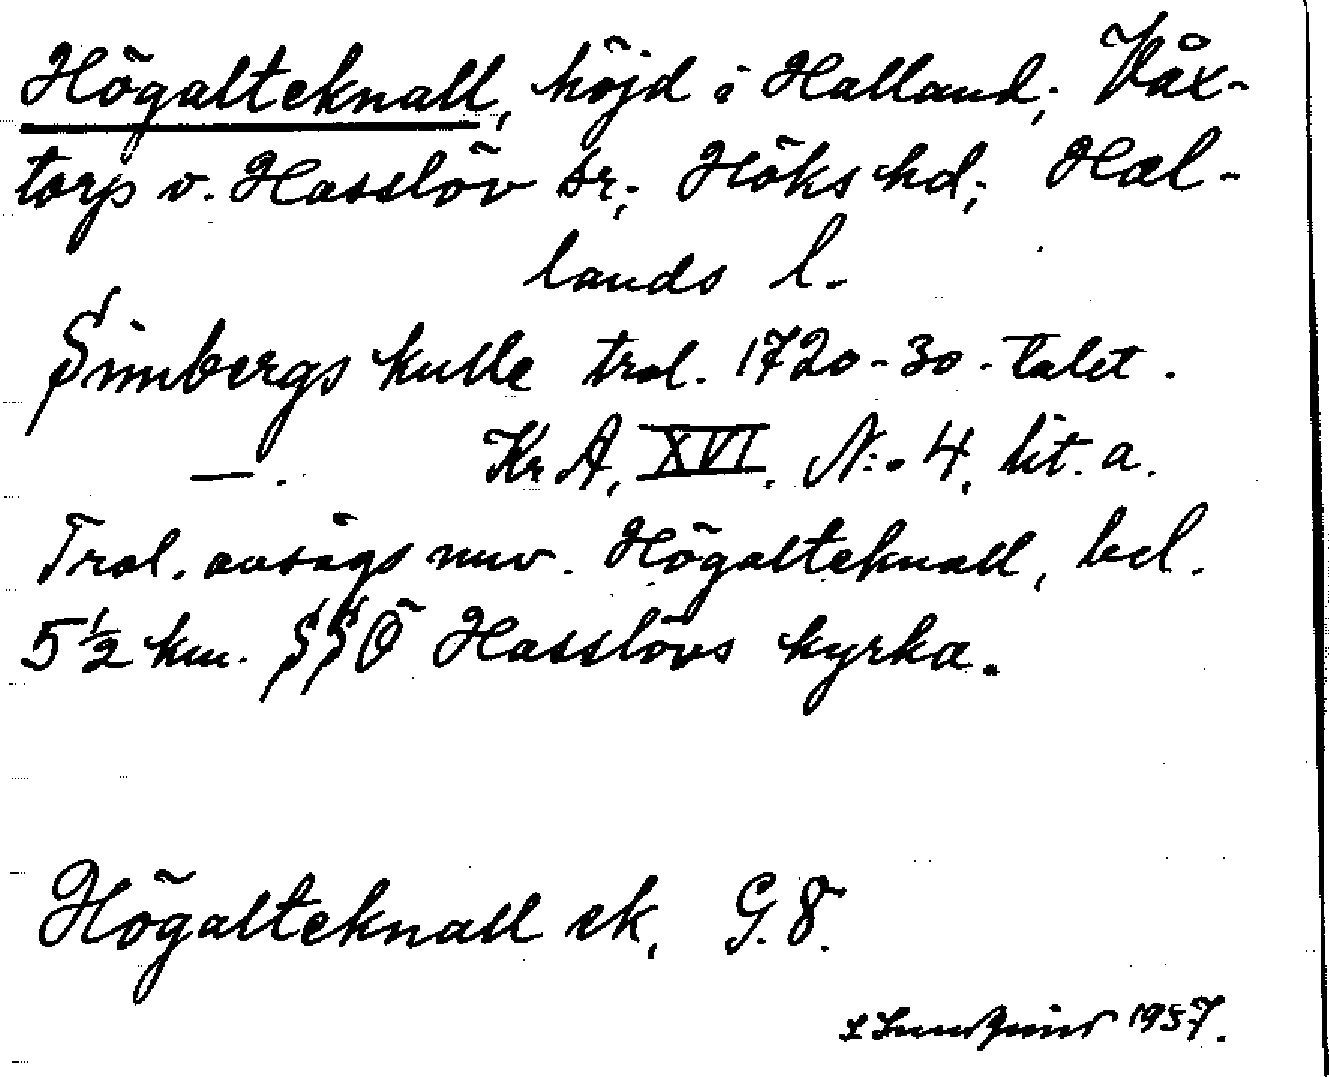 Högalteknall, höjd i Halland; Våx-
torp o. Hasslöv sr; Höks hd; Hal-
lands l.
Simbergs kulle trol. 1720-30-talet.
—. Kr A, XVI. N:o 4, lit. a.
Trol. avsågs nuv. Högalteknall, bel.
5 1/2 km. SSÖ Hasslövs kyrka.
Högalteknall ek, G. 8.
1957.